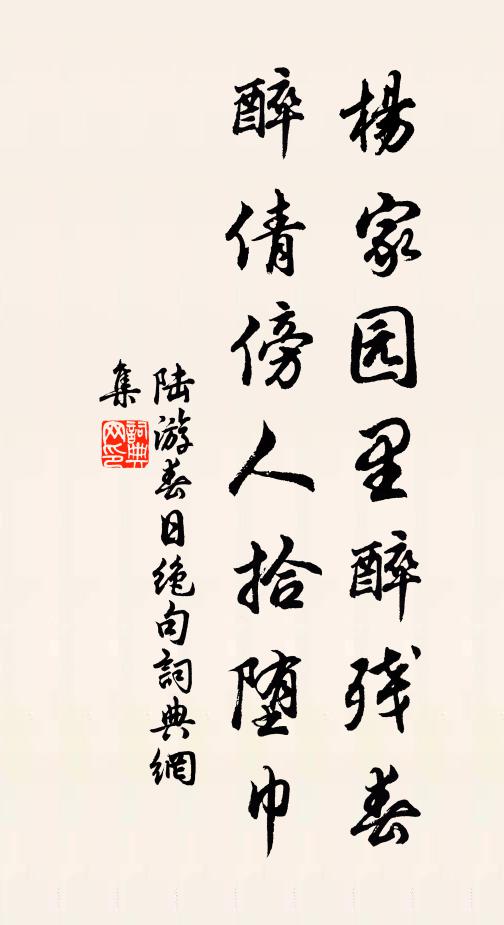 楊家园里醉残春
醉倩傍人拾堕巾
陆游春日绝句詞典網
集
詞典網印